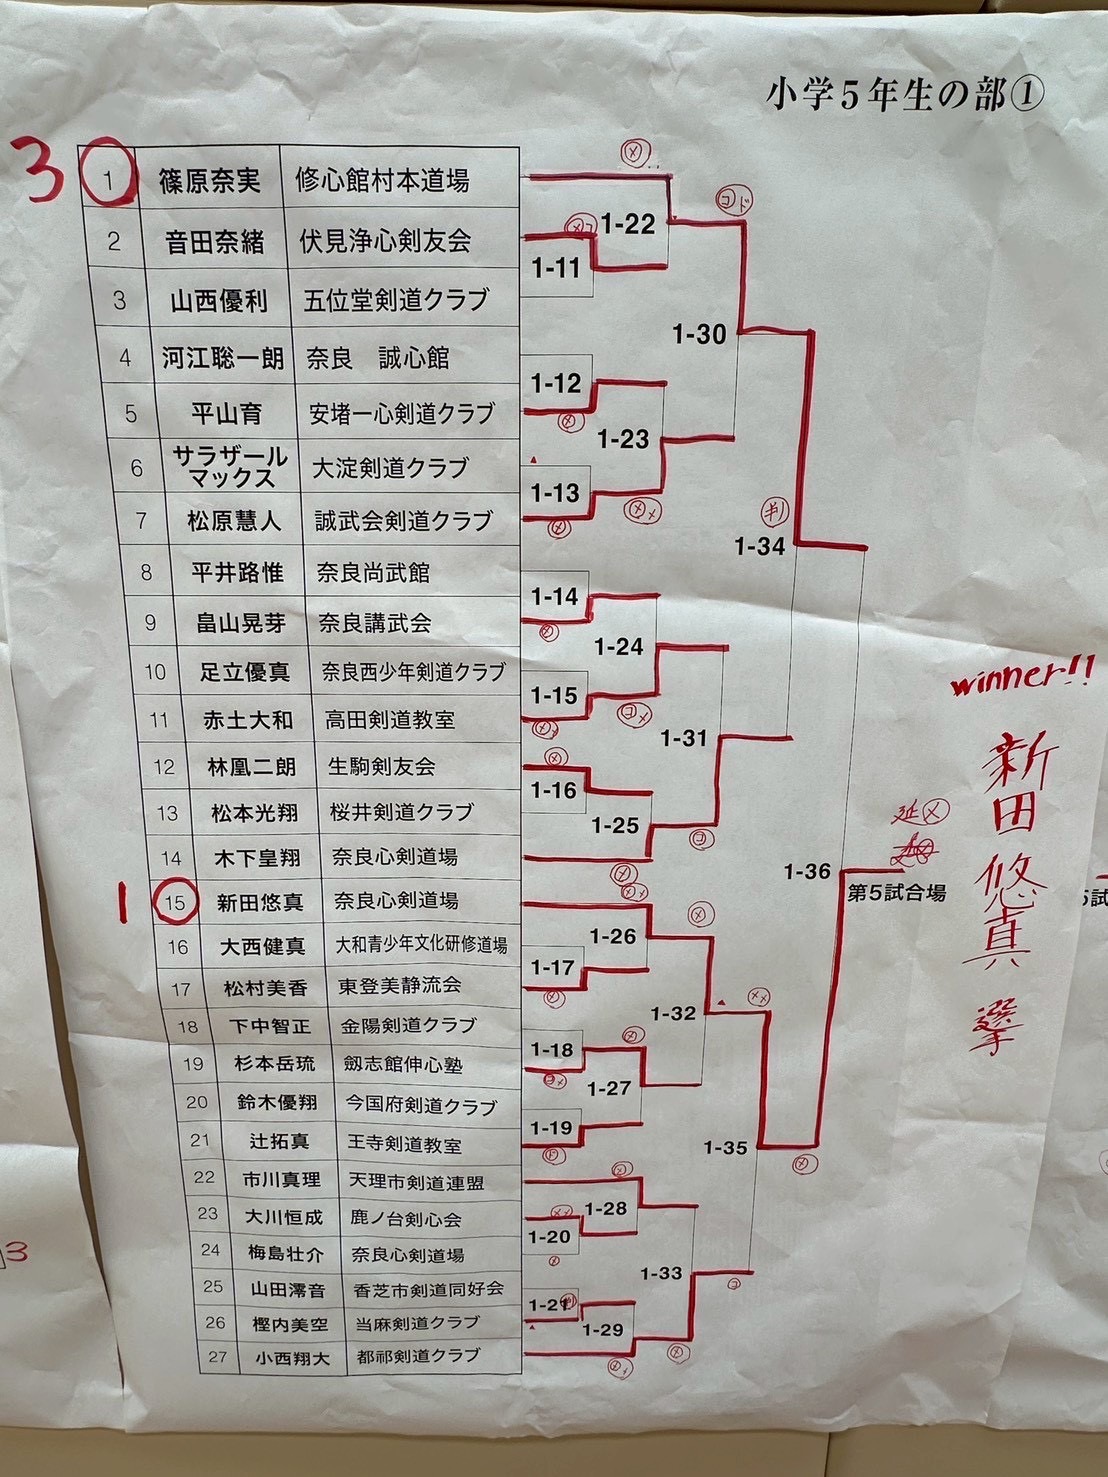 小学5年生の部①
3
1 篠原奈実 修心館村本道場
2 音田奈緒 伏見浄心剣友会
3 山西優利 五位堂剣道クラブ
4 河江聡一朗 奈良 誠心館
5 平山育 安堵一心剣道クラブ
6 サラザールマックス 大淀剣道クラブ
7 松原慧人 誠武会剣道クラブ
8 平井路惟 奈良尚武館
9 畠山晃芽 奈良講武会
10 足立優真 奈良西少年剣道クラブ
11 赤土大和 高田剣道教室
12 林凰二朗 生駒剣友会
13 松本光翔 桜井剣道クラブ
14 木下皇翔 奈良心剣道場
1
15 新田悠真 奈良心剣道場
16 大西健真 大和青少年文化研修道場
17 松村美香 東登美静流会
18 下中智正 金陽剣道クラブ
19 杉本岳琉 劔志館伸心塾
20 鈴木優翔 今国府剣道クラブ
21 辻拓真 王寺剣道教室
22 市川真理 天理市剣道連盟
23 大川恒成 鹿ノ台剣心会
24 梅島壮介 奈良心剣道場
25 山田澪音 香芝市剣道同好会
26 樫内美空 当麻剣道クラブ
27 小西翔大 都祁剣道クラブ
1-11
1-12
1-13
1-14
1-15
1-16
1-17
1-18
1-19
1-20
1-21
1-22
1-23
1-24
1-25
1-26
1-27
1-28
1-29
1-30
1-31
1-32
1-33
1-34
1-35
1-36
延メ
第5試合場
winner!!
新田悠真 選手
3
5試